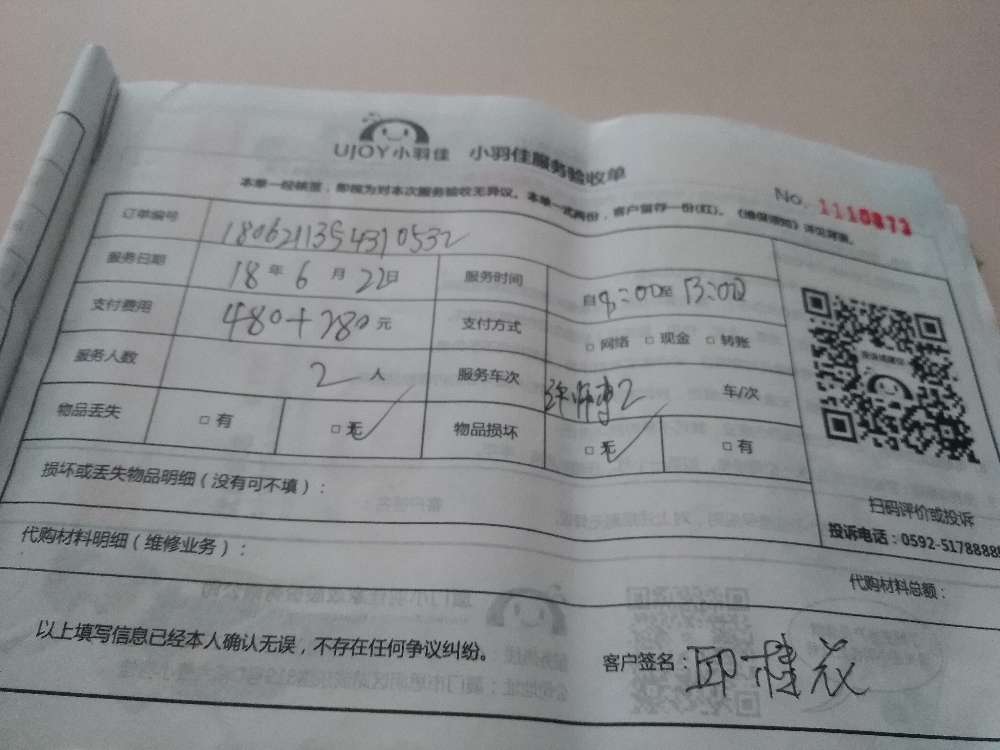 UJOY小羽佳 小羽佳服务验收单
No. 1110873
本单一经核签，即视为对本次服务验收无异议。本单一式两份，客户留存一份(红)。《维保须知》详见背面。
订单编号 1806211354310532
服务日期 18 年 6 月 22日 服务时间 自8:00至13:00
支付费用 480+280元 支付方式 □ 网络 □ 现金 □ 转账
服务人数 2 人 服务车次 2 车/次
物品丢失 □ 有 □ 无 ✓ 物品损坏 □ 无 ✓ □ 有
损坏或丢失物品明细（没有可不填）：
扫码评价或投诉
投诉电话：0592-5178888
代购材料明细（维修业务）：
代购材料总额：
以上填写信息已经本人确认无误，不存在任何争议纠纷。
客户签名：邱桂花